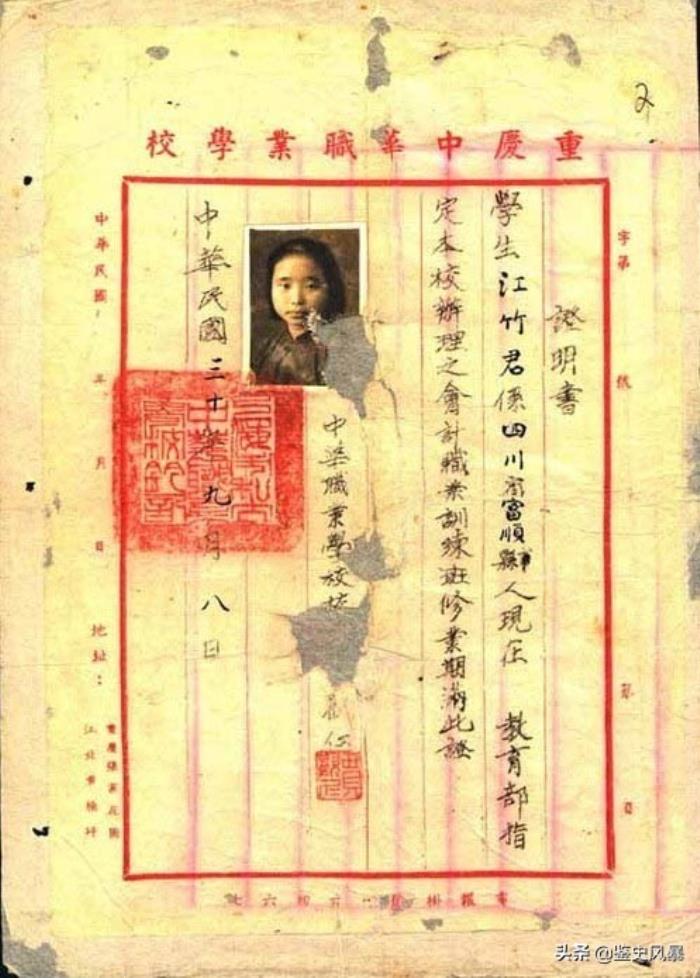 重慶中華職業學校
2
字第
號
第
頁
證明書
學生江竹君係四川省富順縣人現在 教育部指
定本校辦理之會計職業訓練班修業期滿此證
中華職業學校校
中華民國三十年九月八日
中華民國 年 月 日
地址:
重慶張家花園
江北
電報掛號
頭条 @鉴史风暴